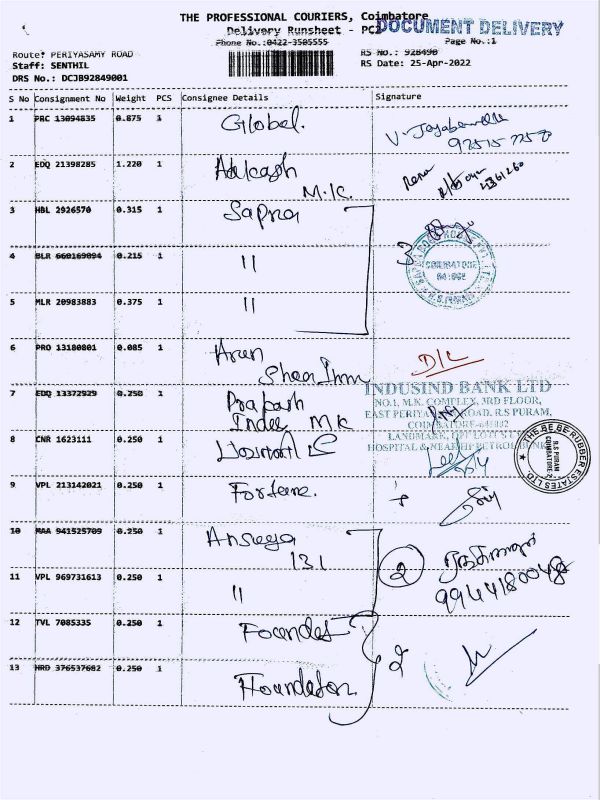 THE PROFESSIONAL COURIERS, Coimbatore
Delivery Runsheet - PC
DOCUMENT DELIVERY
Phone No.:0422-3505555
Page No.:1
Route: PERIYASAMY ROAD
RS No.: 928490
Staff: SENTHIL
RS Date: 25-Apr-2022
DRS No.: DCJB92849001
S No Consignment No Weight PCS Consignee Details Signature
1 PRC 13094835 0.875 1 Global.
2 EDQ 21398285 1.220 1 Aakash
M.K.
3 HBL 2926570 0.315 1 Sapna
4 BLR 660169094 0.215 1 "
5 MLR 20983883 0.375 1 "
3
COIMBATORE
R.S.PURAM
6 PRO 13180801 0.085 1 Arun
D/L
7 EDQ 13372929 0.250 1 Prakash
M K
INDUSIND BANK LTD
NO.1, M.K. COMPLEX, 3RD FLOOR,
EAST PERIYA ROAD, R.S PURAM,
COIMBATORE-641002
LANDMARK, OPP LOTUS
HOSPITAL & NEAR HP PETROL BUNK
8 CNR 1623111 0.250 1
THE BE BE RUBBER ESTATES LTD.
R.S PURAM
COIMBATORE-2
9 VPL 213142021 0.250 1 Fortune.
10 MAA 941525709 0.250 1
131
2
11 VPL 969731613 0.250 1 "
9944180048
12 TVL 7085335 0.250 1
2
13 HRD 376537682 0.250 1